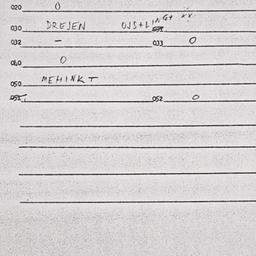 020 0
030 DREJEN OJS+LING+ xx
032 - 033 0
040 0
050 MEHINKT
051 052 0